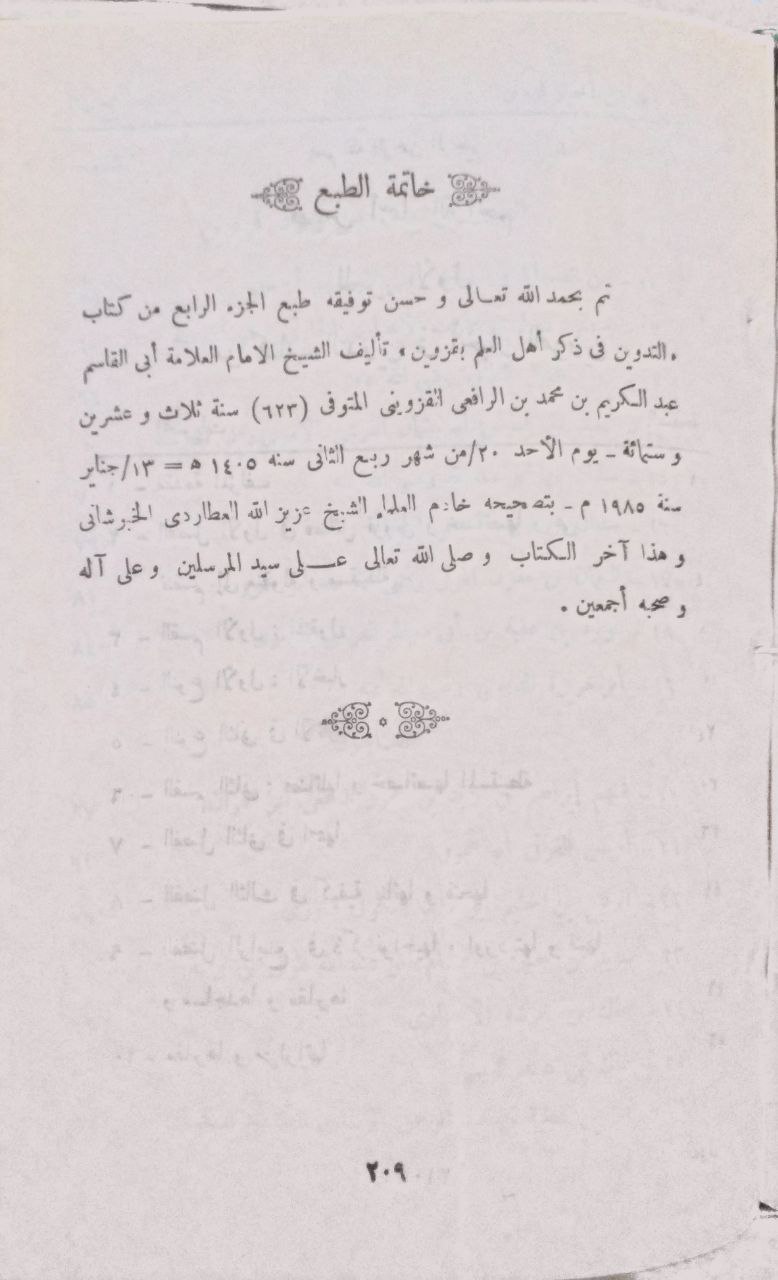 خاتمة الطبع
تم بحمد الله تعالى و حسن توفيقه طبع الجزء الرابع من كتاب
«التدوين فى ذكر أهل العلم بقزوين» تأليف الشيخ الامام العلامة أبى القاسم
عبد الكريم بن محمد بن الرافعى القزوينى المتوفى (٦٢٣) سنة ثلاث و عشرين
و ستمائة - يوم الأحد ٢٠/من شهر ربيع الثانى سنه ١٤٠٥ ه = ١٣/جناير
سنة ١٩٨٥ م - بتصحيحه خادم العلماء الشيخ عزيز الله العطاردى الخبوشانى
و هذا آخر الكتاب و صلى الله تعالى على سيد المرسلين و على آله
و صحبه أجمعين .
٢٠٩